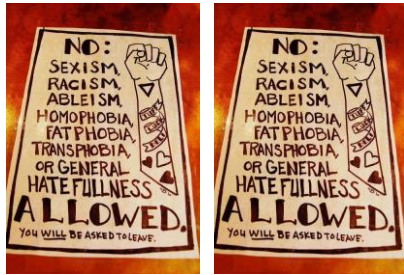 NO:
SEXISM,
RACISM,
ABLEISM,
HOMOPHOBIA,
FATPHOBIA,
TRANSPHOBIA,
OR GENERAL
HATEFULLNESS
ALLOWED.
YOU WILL BE ASKED TO LEAVE.
NO:
SEXISM,
RACISM,
ABLEISM,
HOMOPHOBIA,
FATPHOBIA,
TRANSPHOBIA,
OR GENERAL
HATEFULLNESS
ALLOWED.
YOU WILL BE ASKED TO LEAVE.